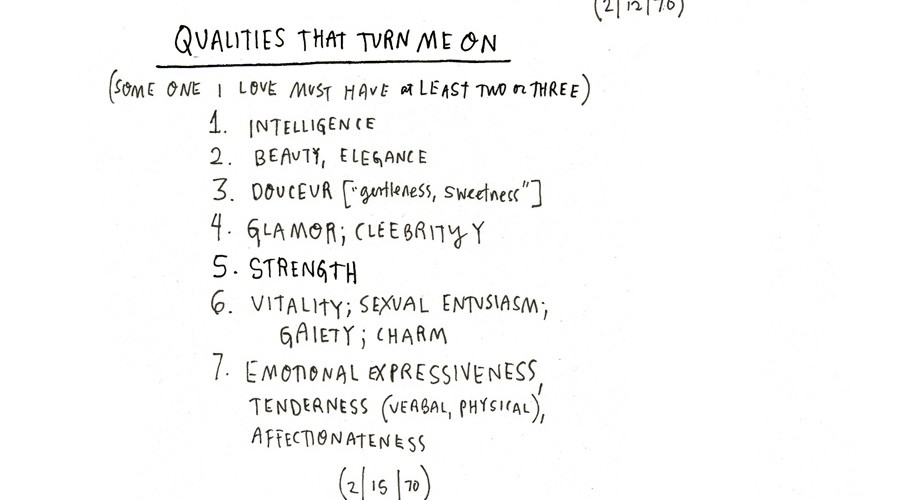 (2|12|70)
QUALITIES THAT TURN ME ON
(SOME ONE I LOVE MUST HAVE at LEAST TWO or THREE)
1. INTELLIGENCE
2. BEAUTY, ELEGANCE
3. DOUCEUR ["gentleness, sweetness"]
4. GLAMOR; CLEEBRITYY
5. STRENGTH
6. VITALITY; SEXUAL ENTUSIASM;
GAIETY; CHARM
7. EMOTIONAL EXPRESSIVENESS,
TENDERNESS (VERBAL, PHYSICAL),
AFFECTIONATENESS
(2|15|70)